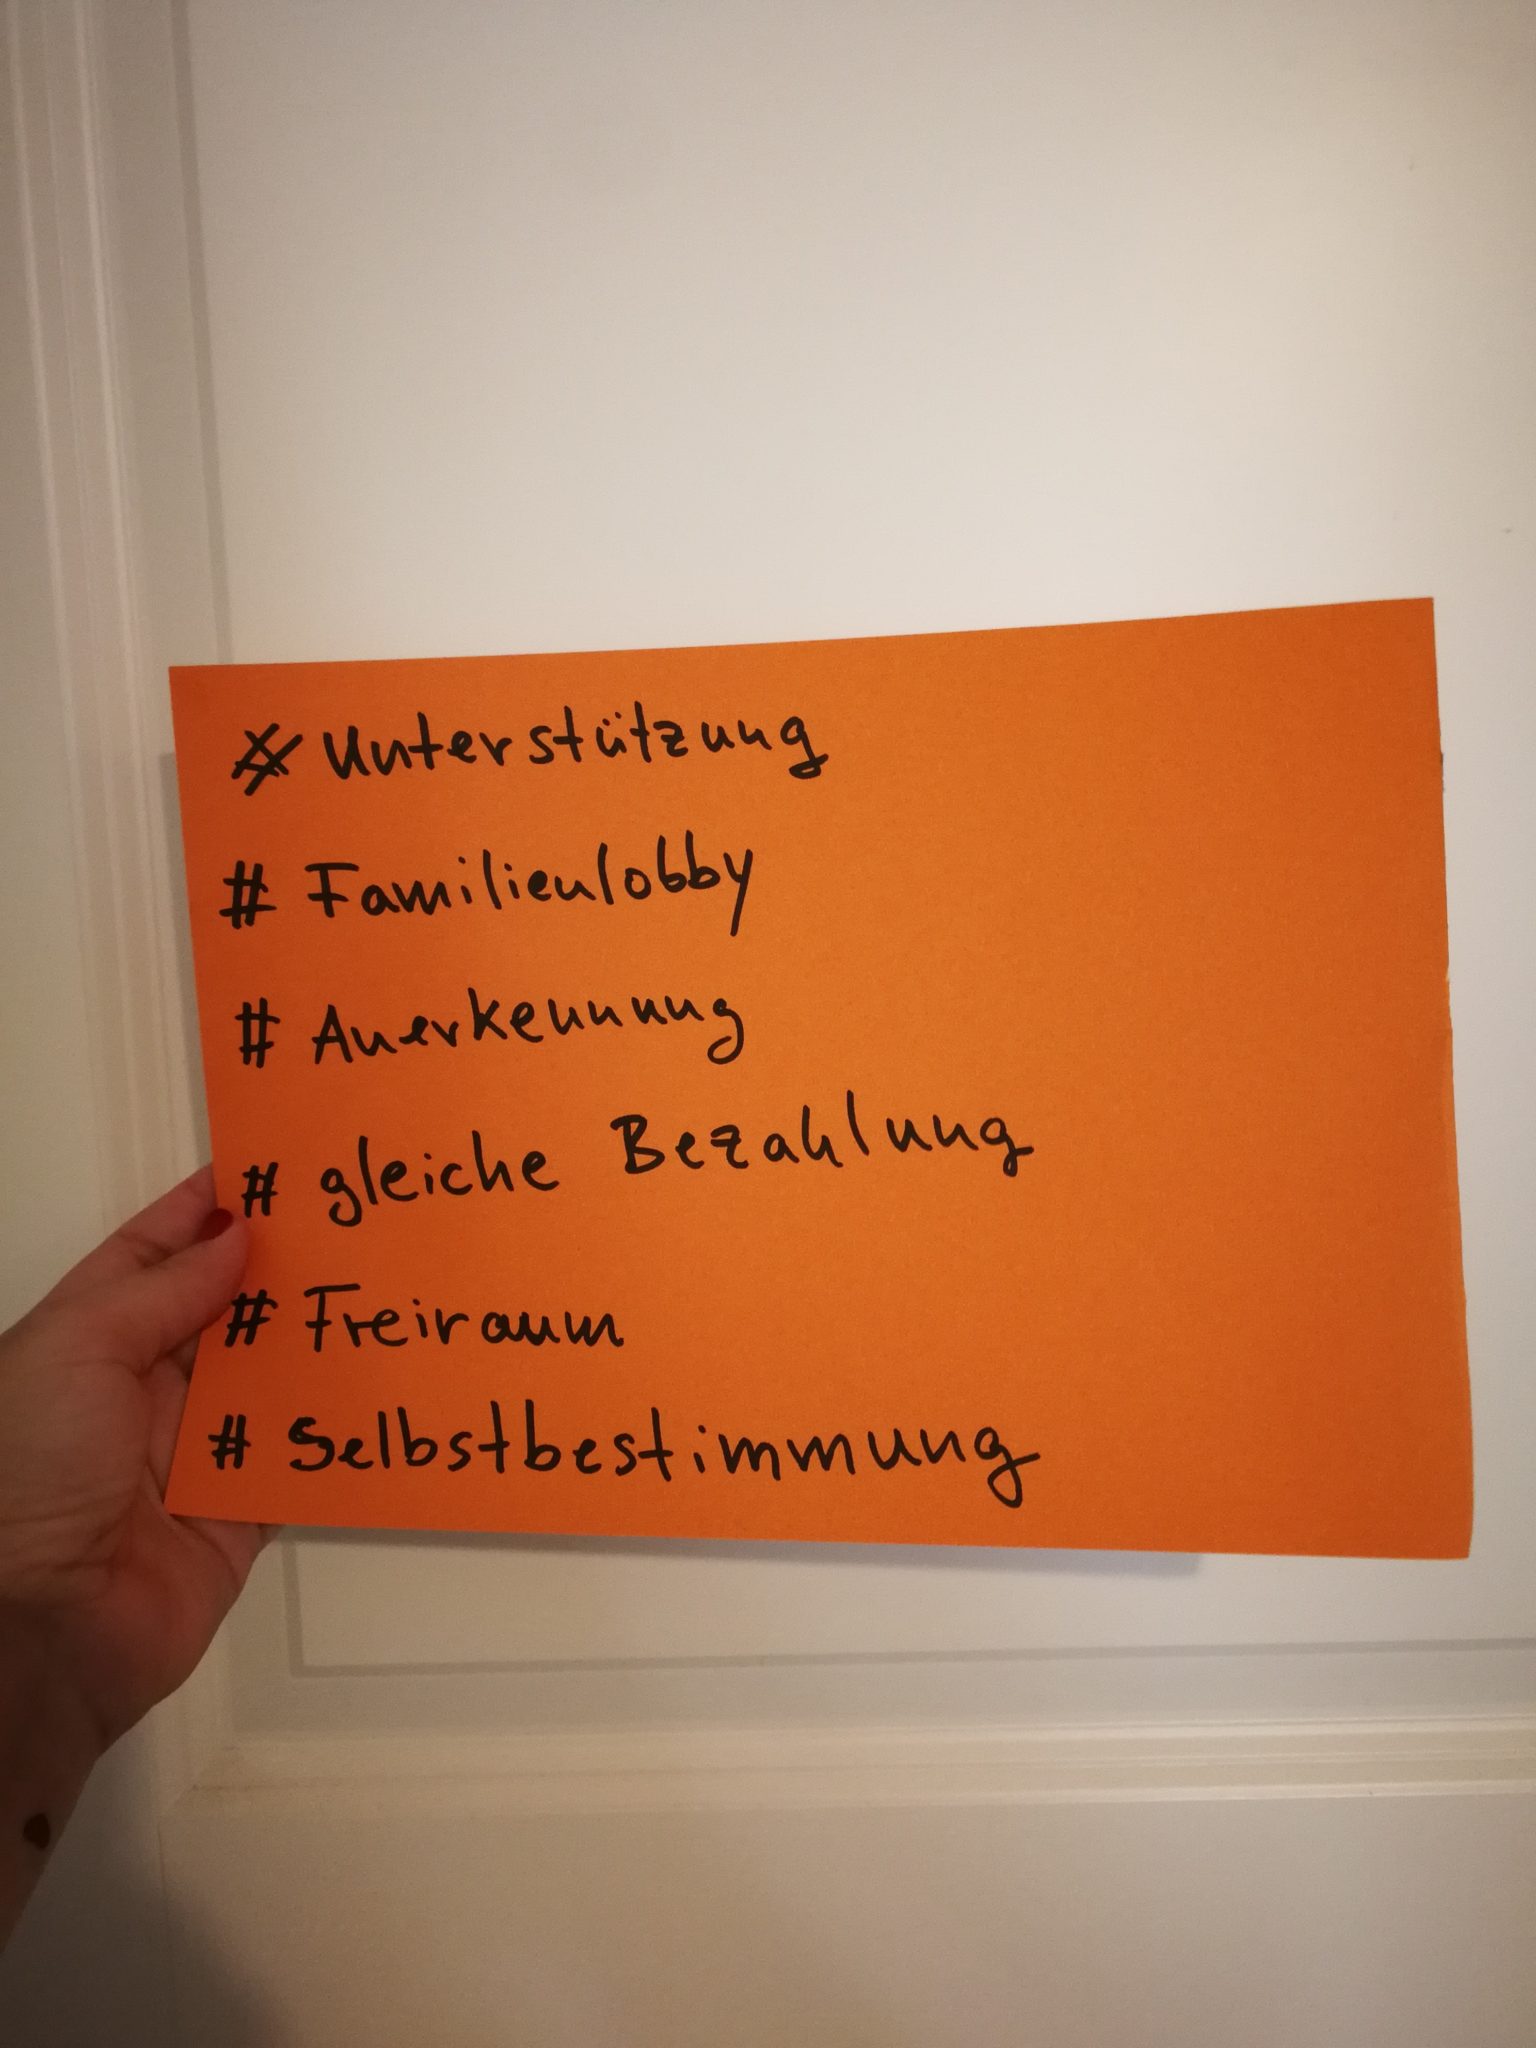 # Unterstützung
# Familienlobby
# Anerkennung
# gleiche Bezahlung
# Freiraum
# Selbstbestimmung